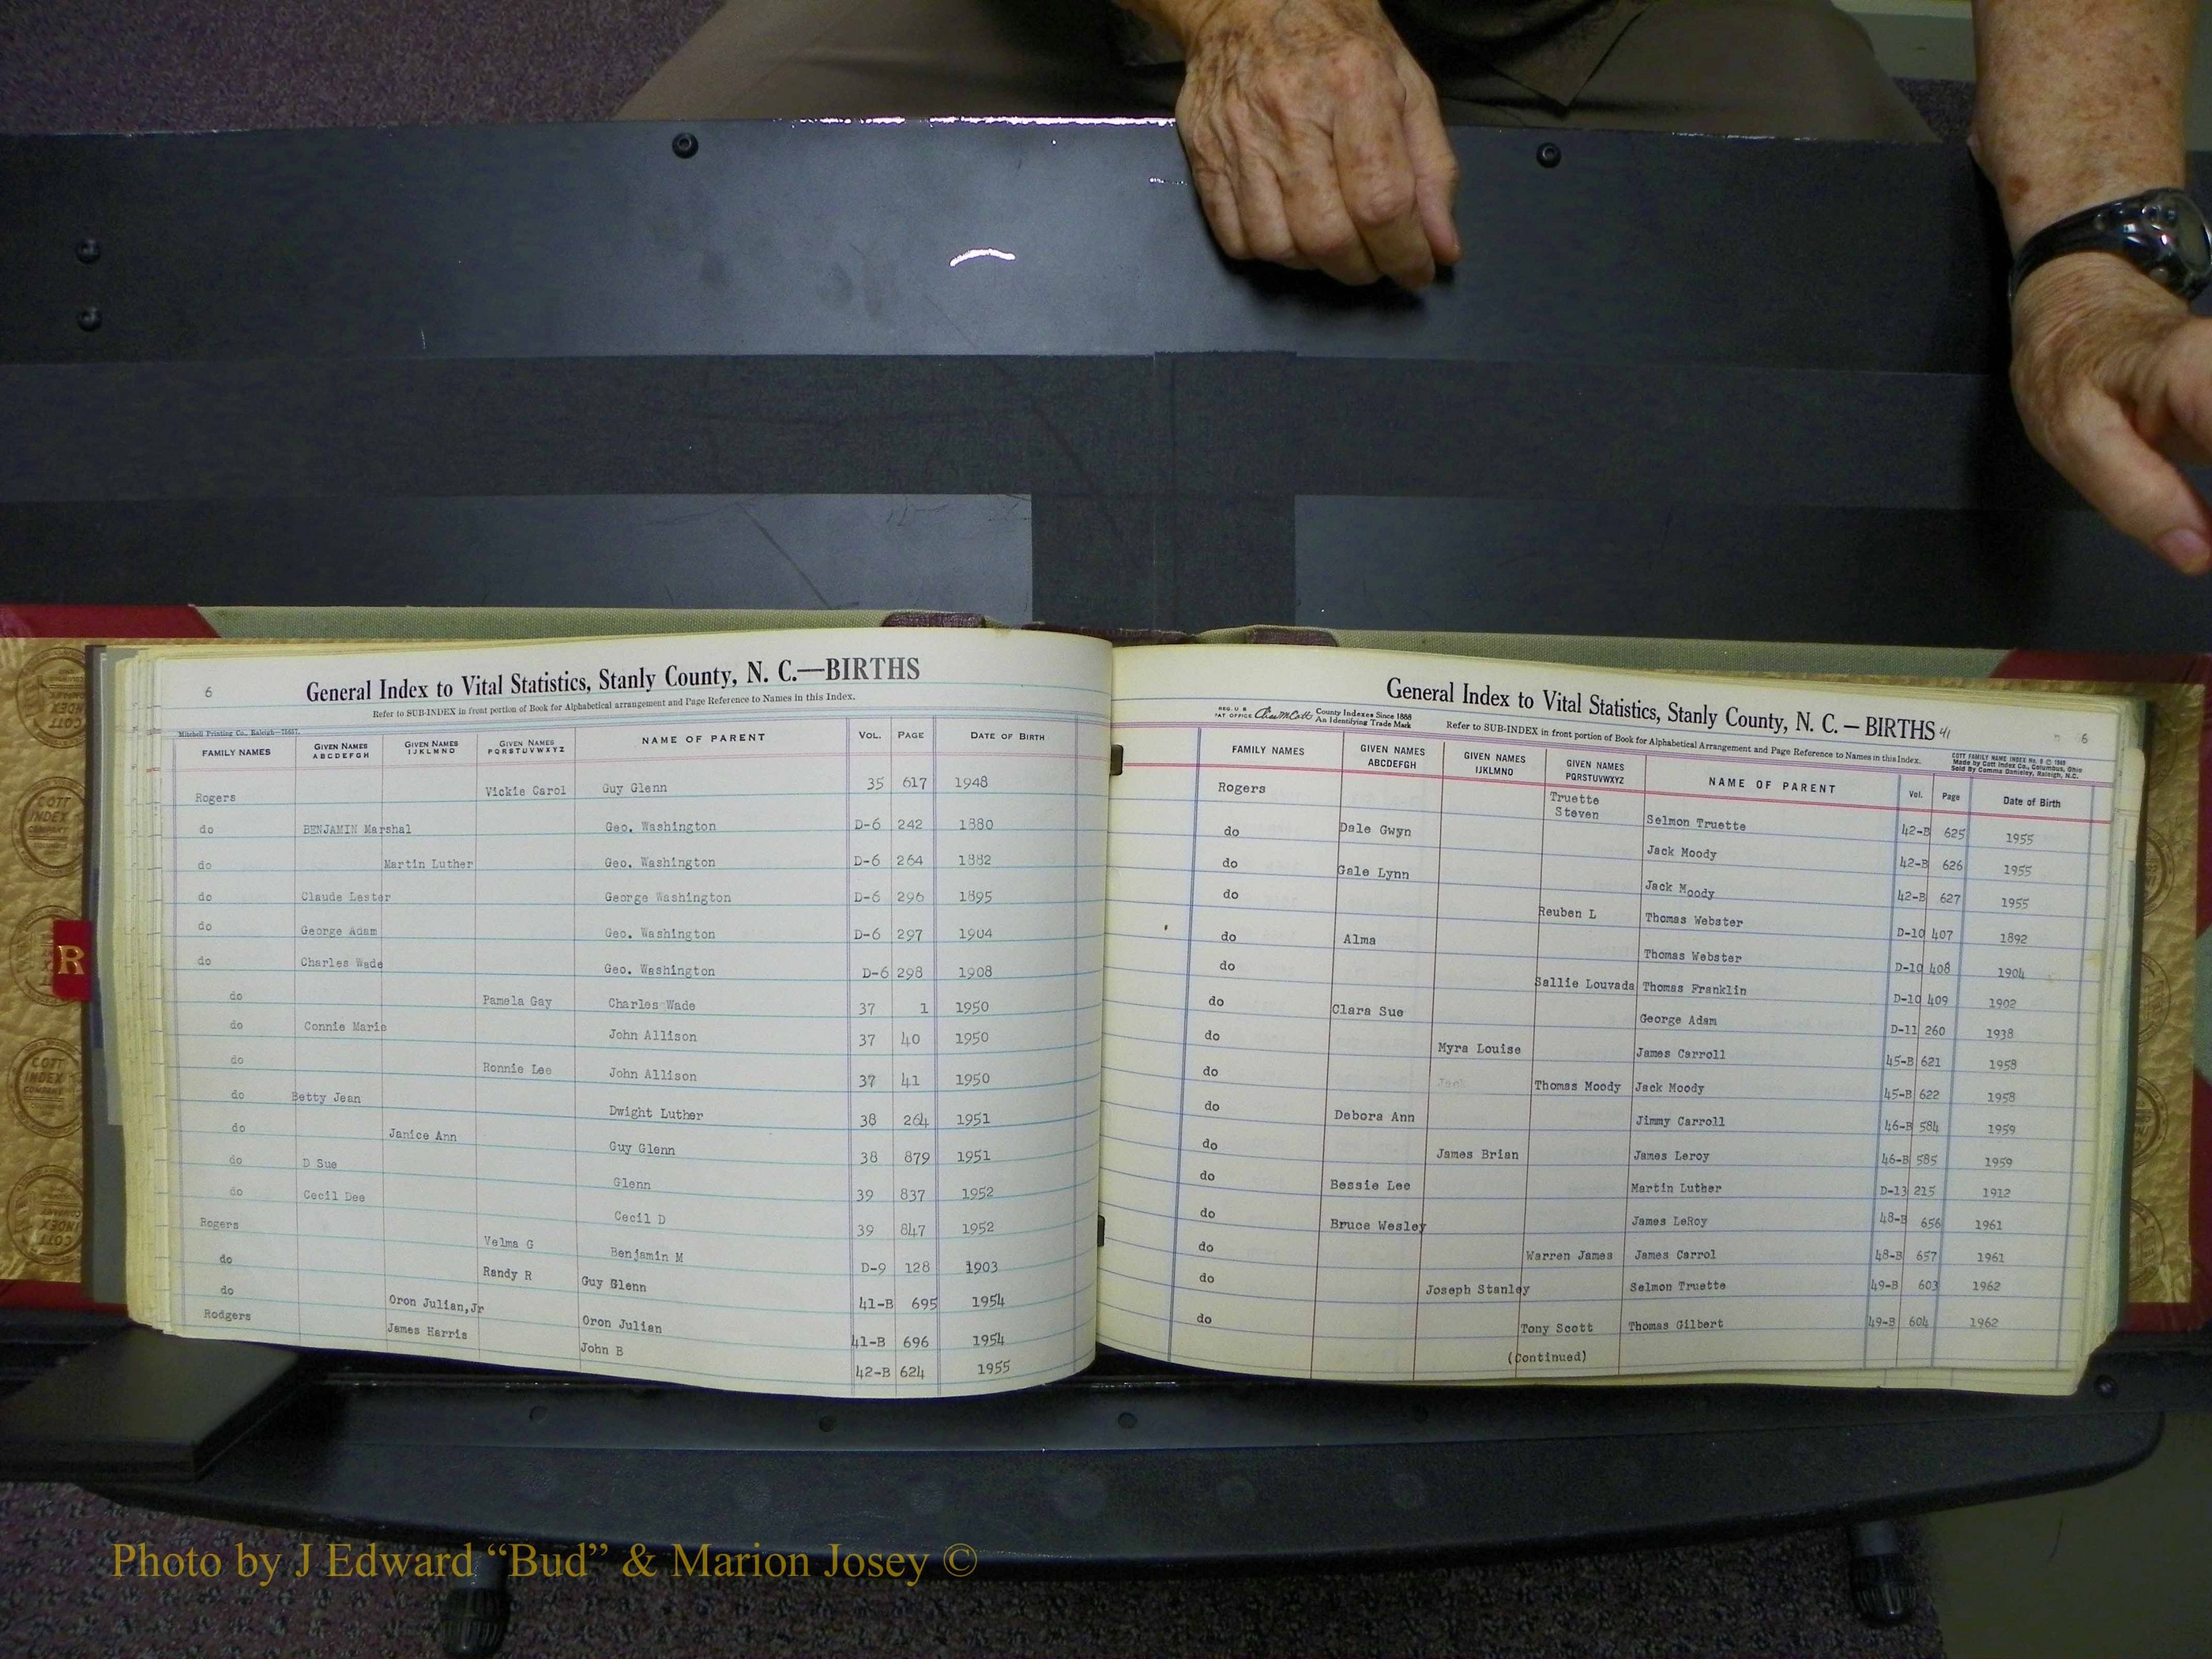 6
General Index to Vital Statistics, Stanly County, N. C.—BIRTHS
Refer to SUB-INDEX in front portion of Book for Alphabetical arrangement and Page Reference to Names in this Index.
Mitchell Printing Co., Raleigh
FAMILY NAMES GIVEN NAMES ABCDEFGH GIVEN NAMES IJKLMNO GIVEN NAMES PQRSTUVWXYZ NAME OF PARENT VOL. PAGE DATE OF BIRTH
Rogers Vickie Carol Guy Glenn 35 617 1948
do BENJAMIN Marshal Geo. Washington D-6 242 1880
do Martin Luther Geo. Washington D-6 264 1882
do Claude Lester George Washington D-6 296 1895
do George Adam Geo. Washington D-6 297 1904
do Charles Wade Geo. Washington D-6 298 1908
do Pamela Gay Charles Wade 37 1 1950
do Connie Marie John Allison 37 40 1950
do Ronnie Lee John Allison 37 41 1950
do Betty Jean Dwight Luther 38 264 1951
do Janice Ann Guy Glenn 38 879 1951
do D Sue Glenn 39 837 1952
do Cecil Dee Cecil D 39 847 1952
Rogers Velma G Benjamin M D-9 128 1903
do Randy R Guy Glenn 41-B 695 1954
do Oron Julian,Jr Oron Julian 41-B 696 1954
Rodgers James Harris John B 42-B 624 1955
General Index to Vital Statistics, Stanly County, N. C. — BIRTHS 41
6
REG. U. S. PAT OFFICE County Indexes Since 1888 An Identifying Trade Mark
Refer to SUB-INDEX in front portion of Book for Alphabetical Arrangement and Page Reference to Names in this Index.
COTT FAMILY NAME INDEX No. 9 © 1949
Made by Cott Index Co., Columbus, Ohio
Sold By Comma Danieley, Raleigh, N.C.
FAMILY NAMES GIVEN NAMES ABCDEFGH GIVEN NAMES IJKLMNO GIVEN NAMES PQRSTUVWXYZ NAME OF PARENT Vol. Page Date of Birth
Rogers Truette Steven Selmon Truette 42-B 625 1955
do Dale Gwyn Jack Moody 42-B 626 1955
do Gale Lynn Jack Moody 42-B 627 1955
do Reuben L Thomas Webster D-10 407 1892
do Alma Thomas Webster D-10 408 1904
do Sallie Louvada Thomas Franklin D-10 409 1902
do Clara Sue George Adam D-11 260 1938
do Myra Louise James Carroll 45-B 621 1958
do Jack Thomas Moody Jack Moody 45-B 622 1958
do Debora Ann Jimmy Carroll 46-B 584 1959
do James Brian James Leroy 46-B 585 1959
do Bessie Lee Martin Luther D-13 215 1912
do Bruce Wesley James LeRoy 48-B 656 1961
do Warren James James Carrol 48-B 657 1961
do Joseph Stanley Selmon Truette 49-B 603 1962
do Tony Scott Thomas Gilbert 49-B 604 1962
(Continued)
R
COTT INDEX COMPANY
COTT INDEX COMPANY
Photo by J Edward “Bud” & Marion Josey ©